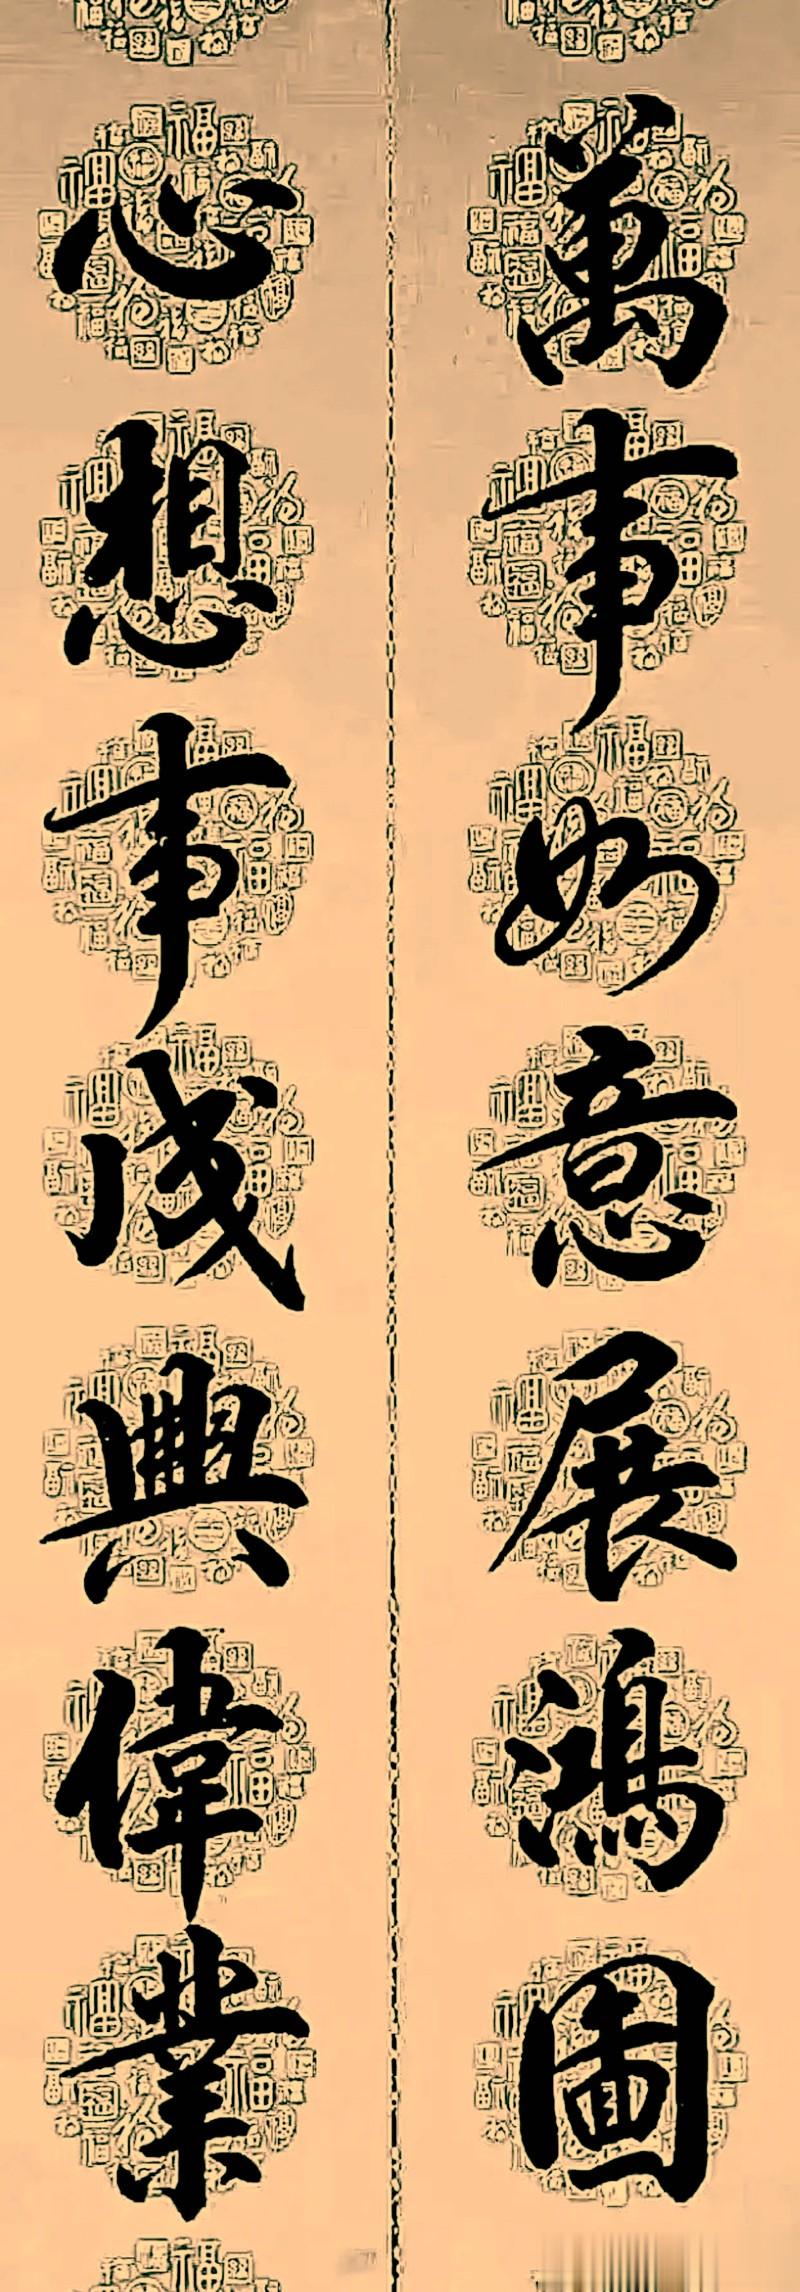 萬事如意展鴻圖
心想事成興偉業